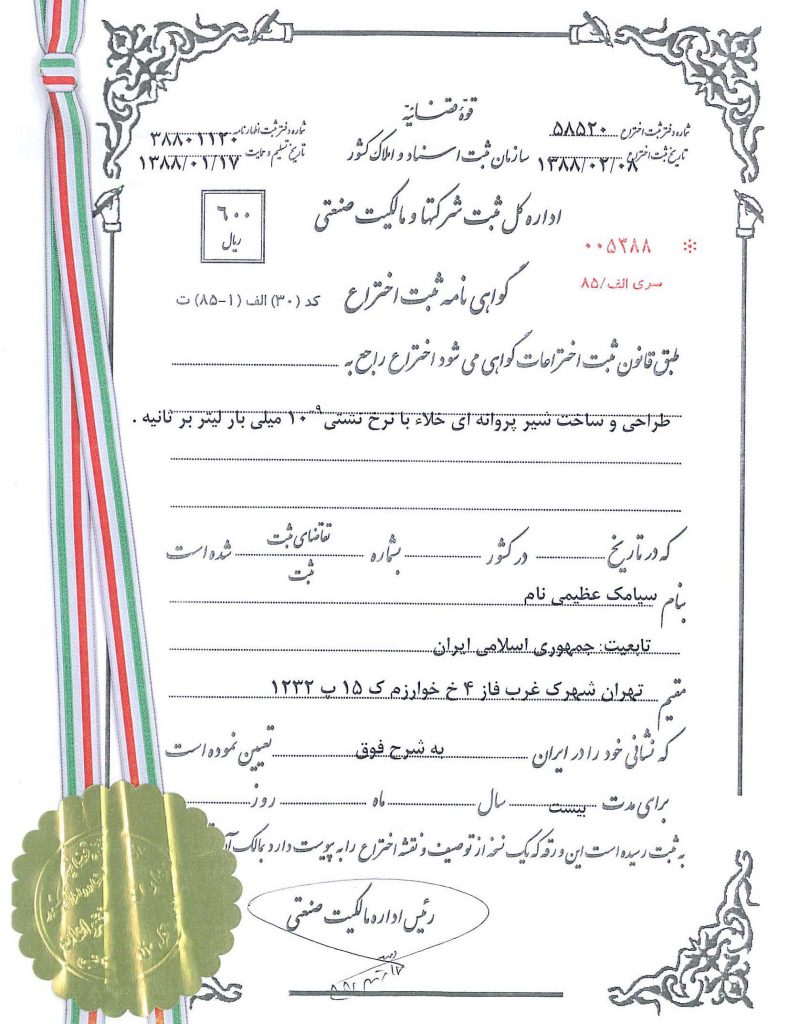 قوهٔ قضائیه
شماره دفتر ثبت اختراع ۵۸۵۲۰
شماره دفتر ثبت اظهارنامه ۳۸۸۰۱۱۲۰
سازمان ثبت اسناد و املاک کشور
تاریخ ثبت اختراع ۱۳۸۸/۰۲/۰۸
تاریخ تسلیم و حمایت ۱۳۸۸/۰۱/۱۷
اداره کل ثبت شرکتها و مالکیت صنعتی
۶۰۰
ریال
۰۰۵۳۸۸
سری الف/۸۵
گواهی نامه ثبت اختراع
کد (۳۰) الف (۱-۸۵) ت
طبق قانون ثبت اختراعات گواهی می شود اختراع راجع به
طراحی و ساخت شیر پروانه ای خلاء با نرخ نشتی ۱۰⁻⁹ میلی بار لیتر بر ثانیه .
که در تاریخ در کشور بشماره تقاضای ثبت شده است
ثبت
بنام سیامک عظیمی نام
تابعیت: جمهوری اسلامی ایران
مقیم تهران شهرک غرب فاز ۴ خ خوارزم ک ۱۵ پ ۱۲۳۲
که نشانی خود را در ایران به شرح فوق تعیین نموده است
برای مدت بیست سال ماه روز
به ثبت رسیده است این ورقه که یک نسخه از توصیف و نقشه اختراع را به پیوست دارد بمالک
رئیس اداره مالکیت صنعتی